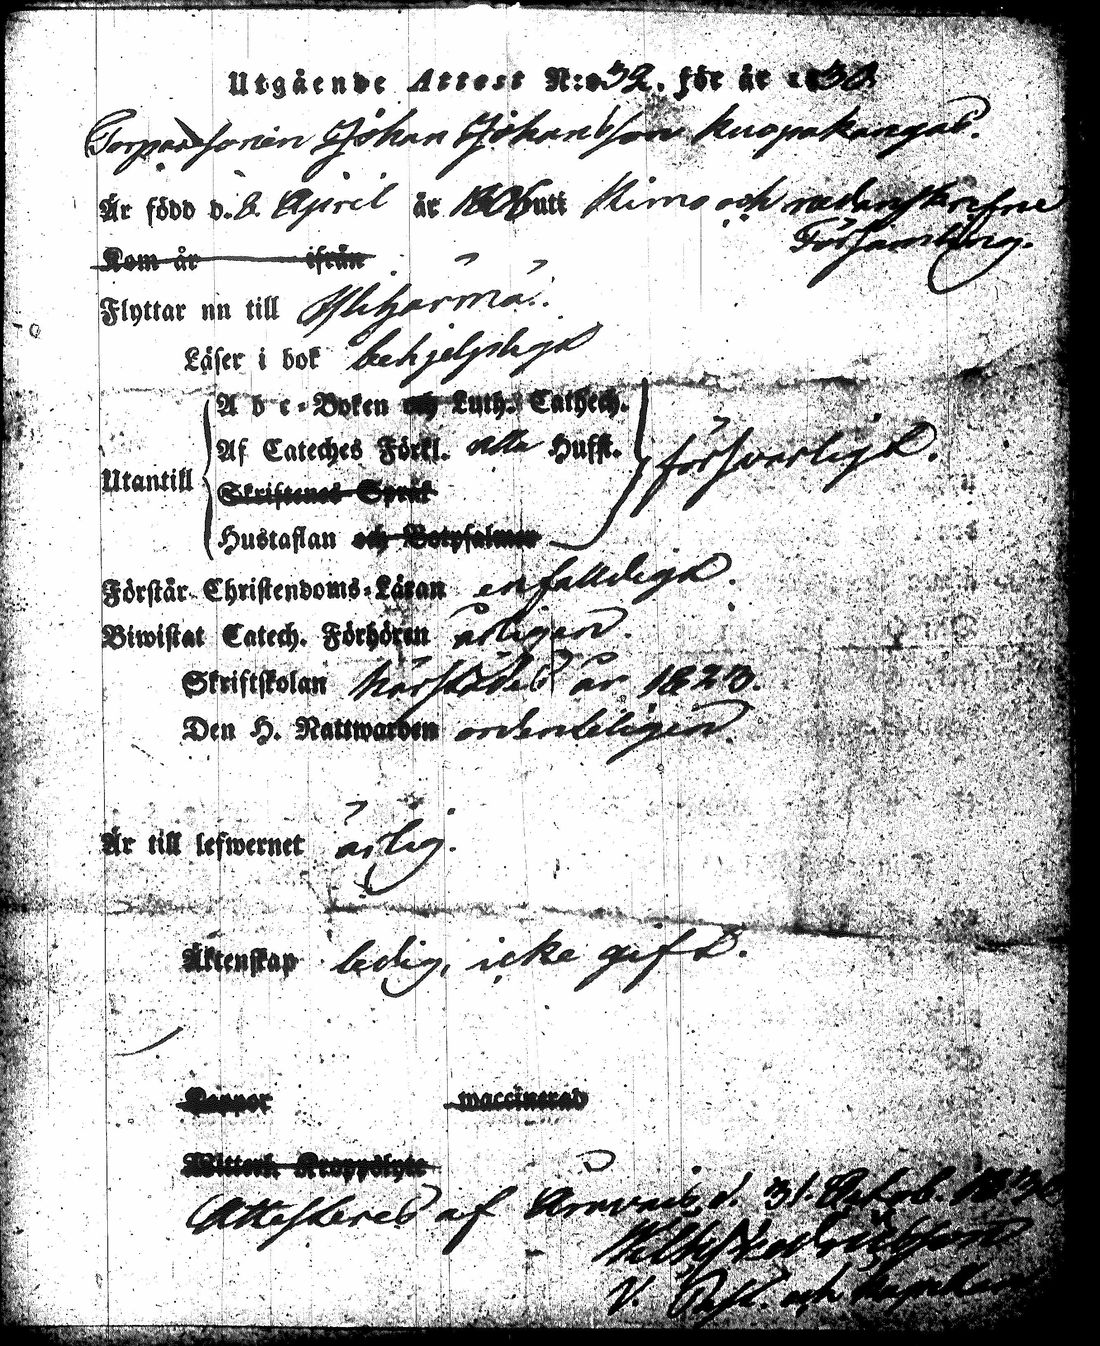 Utgående Attest N:o 32. för år 1830.
Torparsonen Johan Johansson Kuopakangas.
Är född d. 8. April år 1806 uti Kimo och nedanskrifne
Församling.
Kom år ifrån
Flyttar nu till Ylihärmä.
Läser i bok behjelpligt
Utantill
A b c-Boken och Luth. Cathech.
Af Cateches Förkl. alla Hufst. försvarligt.
Skriftenes Språk
Hustaflan och Botpsalmer
Förstår Christendoms-Läran enfaldigt.
Biwistat Catech. Förhören årligen.
Skriftskolan härstädes år 1823.
Den H. Nattwarden ordentligen
Är till lefwernet ärlig.
Äktenskap ledig, icke gift.
Koppor waccinerad
Witterl. Kroppslyte
Attesteras af Oravais d. 31. Octob. 1830
V. Past. och Kapellan